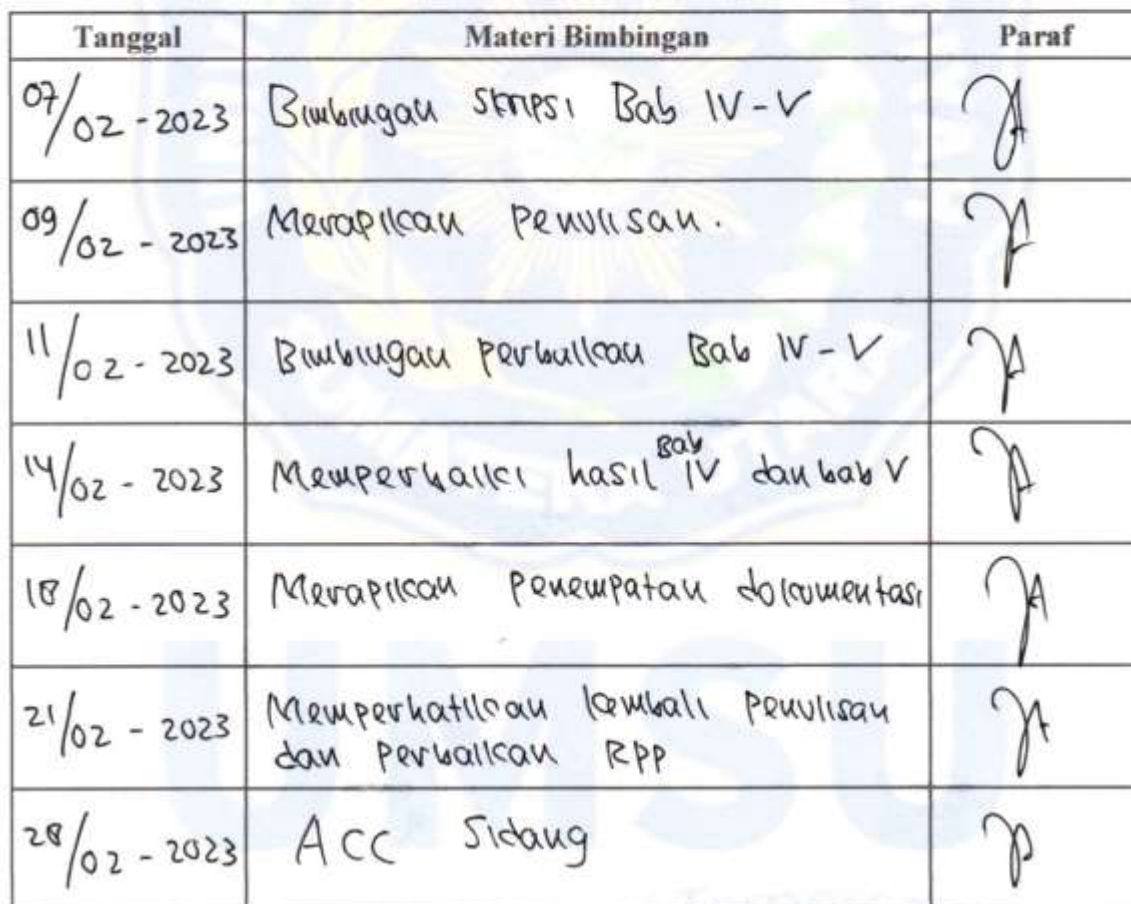 Tanggal Materi Bimbingan Paraf
07/02-2023 Bimbingan skripsi Bab IV-V
09/02-2023 Merapikan Penulisan.
11/02-2023 Bimbingan perbaikan Bab IV-V
14/02-2023 Memperbaiki hasil Bab IV dan bab V
18/02-2023 Merapikan Penempatan dokumentasi
21/02-2023 Memperhatikan kembali penulisan
dan perbaikan RPP
28/02-2023 ACC Sidang
SUMATERA UTARA
UMSU